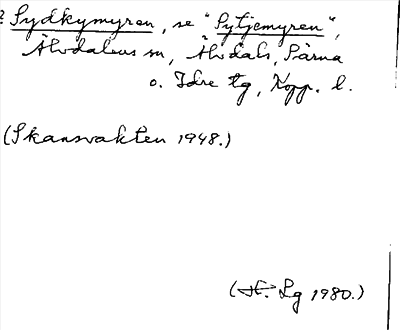 ? Sydkymyren, se "Sytjemyren",
Älvdalens sn, Älvdals, Särna
o. Idre tg, Kopp. l.
(Skansvakten 1948.)
(H. Lg 1980.)